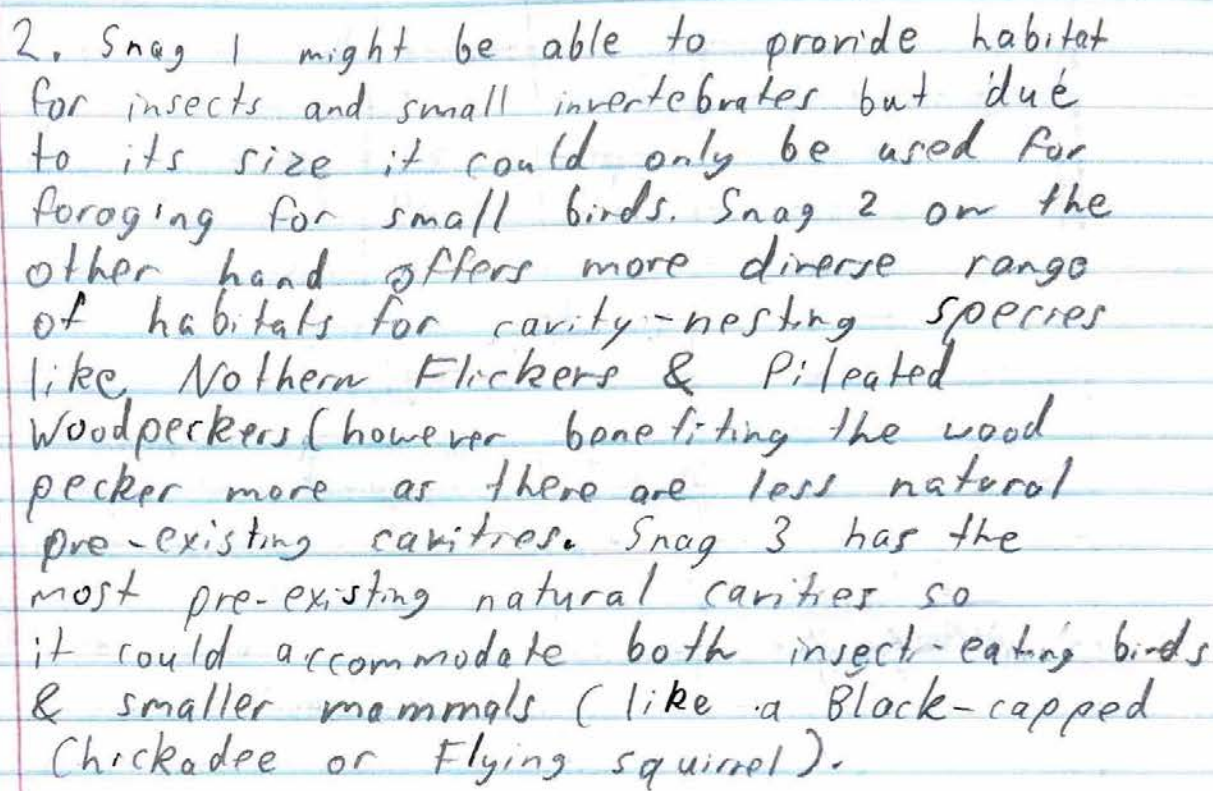 2. Snag 1 might be able to provide habitat
for insects and small invertebrates but due
to its size it could only be used for
foraging for small birds. Snag 2 on the
other hand offers more diverse range
of habitats for cavity-nesting species
like Nothern Flickers & Pileated
Woodpeckers (however benefiting the wood
pecker more as there are less natural
pre-existing cavities. Snag 3 has the
most pre-existing natural cavities so
it could accommodate both insect-eating birds
& smaller mammals (like a Black-capped
Chickadee or Flying squirrel).